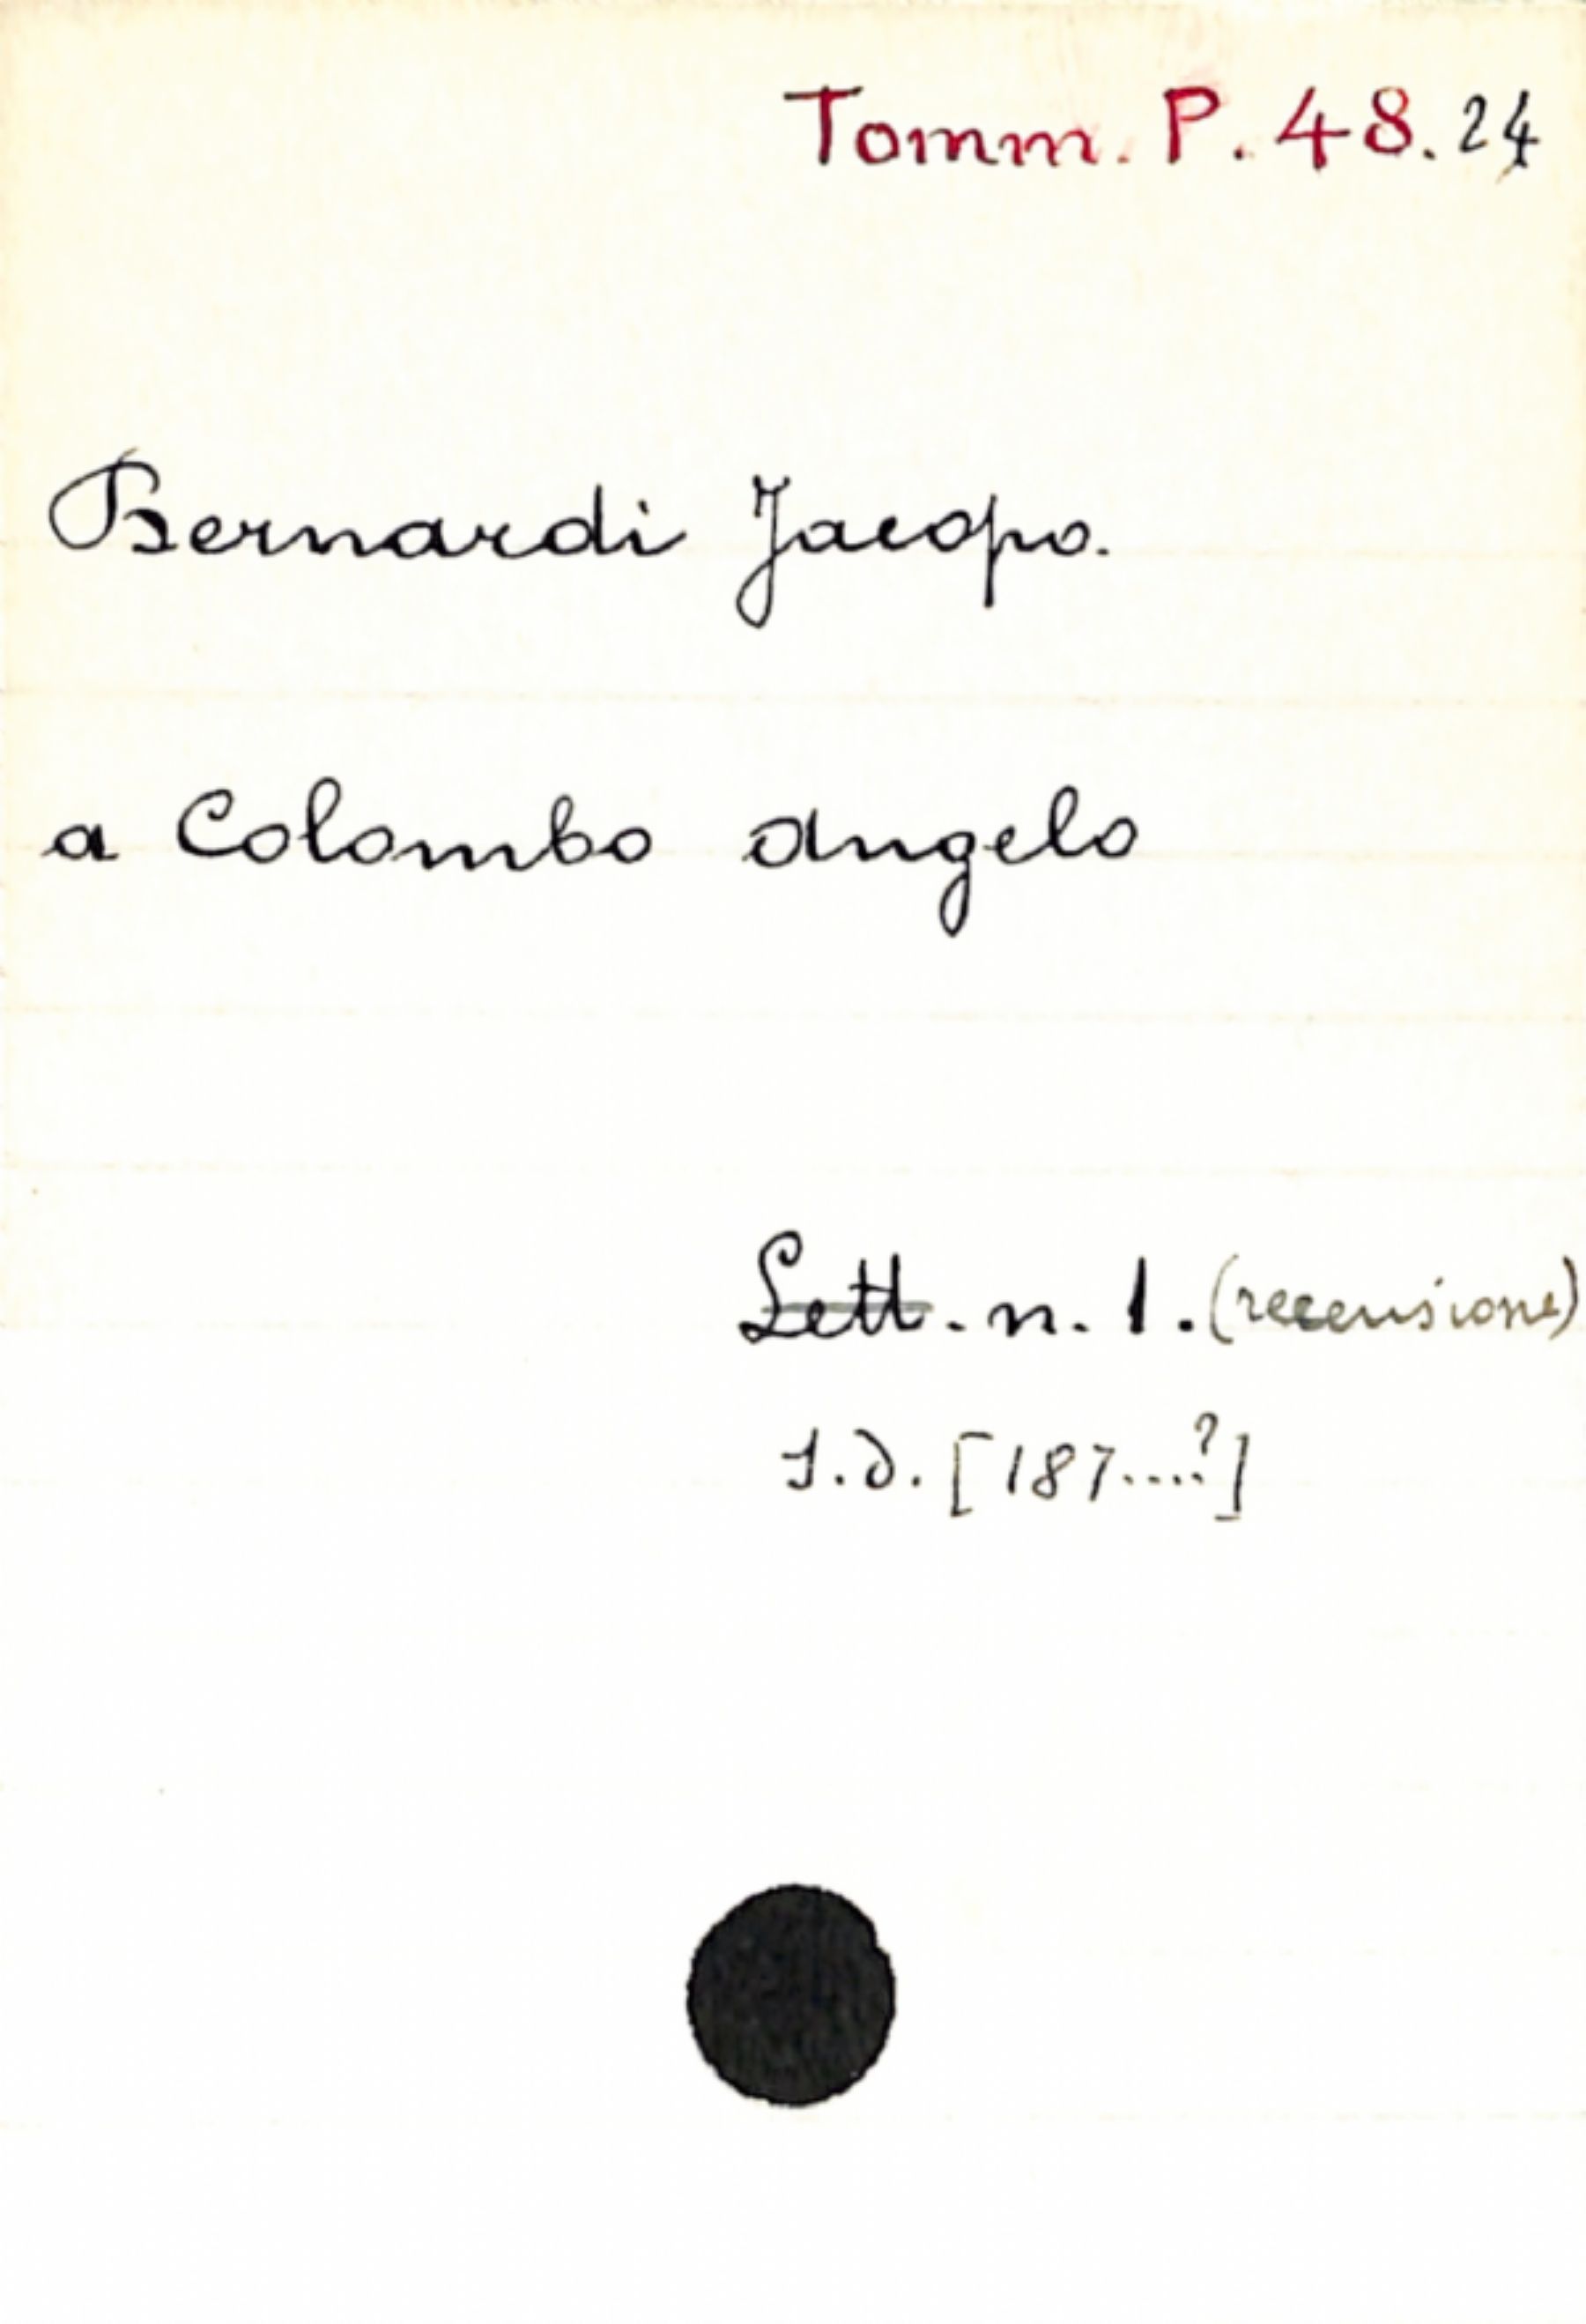 Tomm. P. 48. 24
Bernardi Jacopo.
a Colombo Angelo
Lett. n. 1. (recensione)
s.d. [187....?]